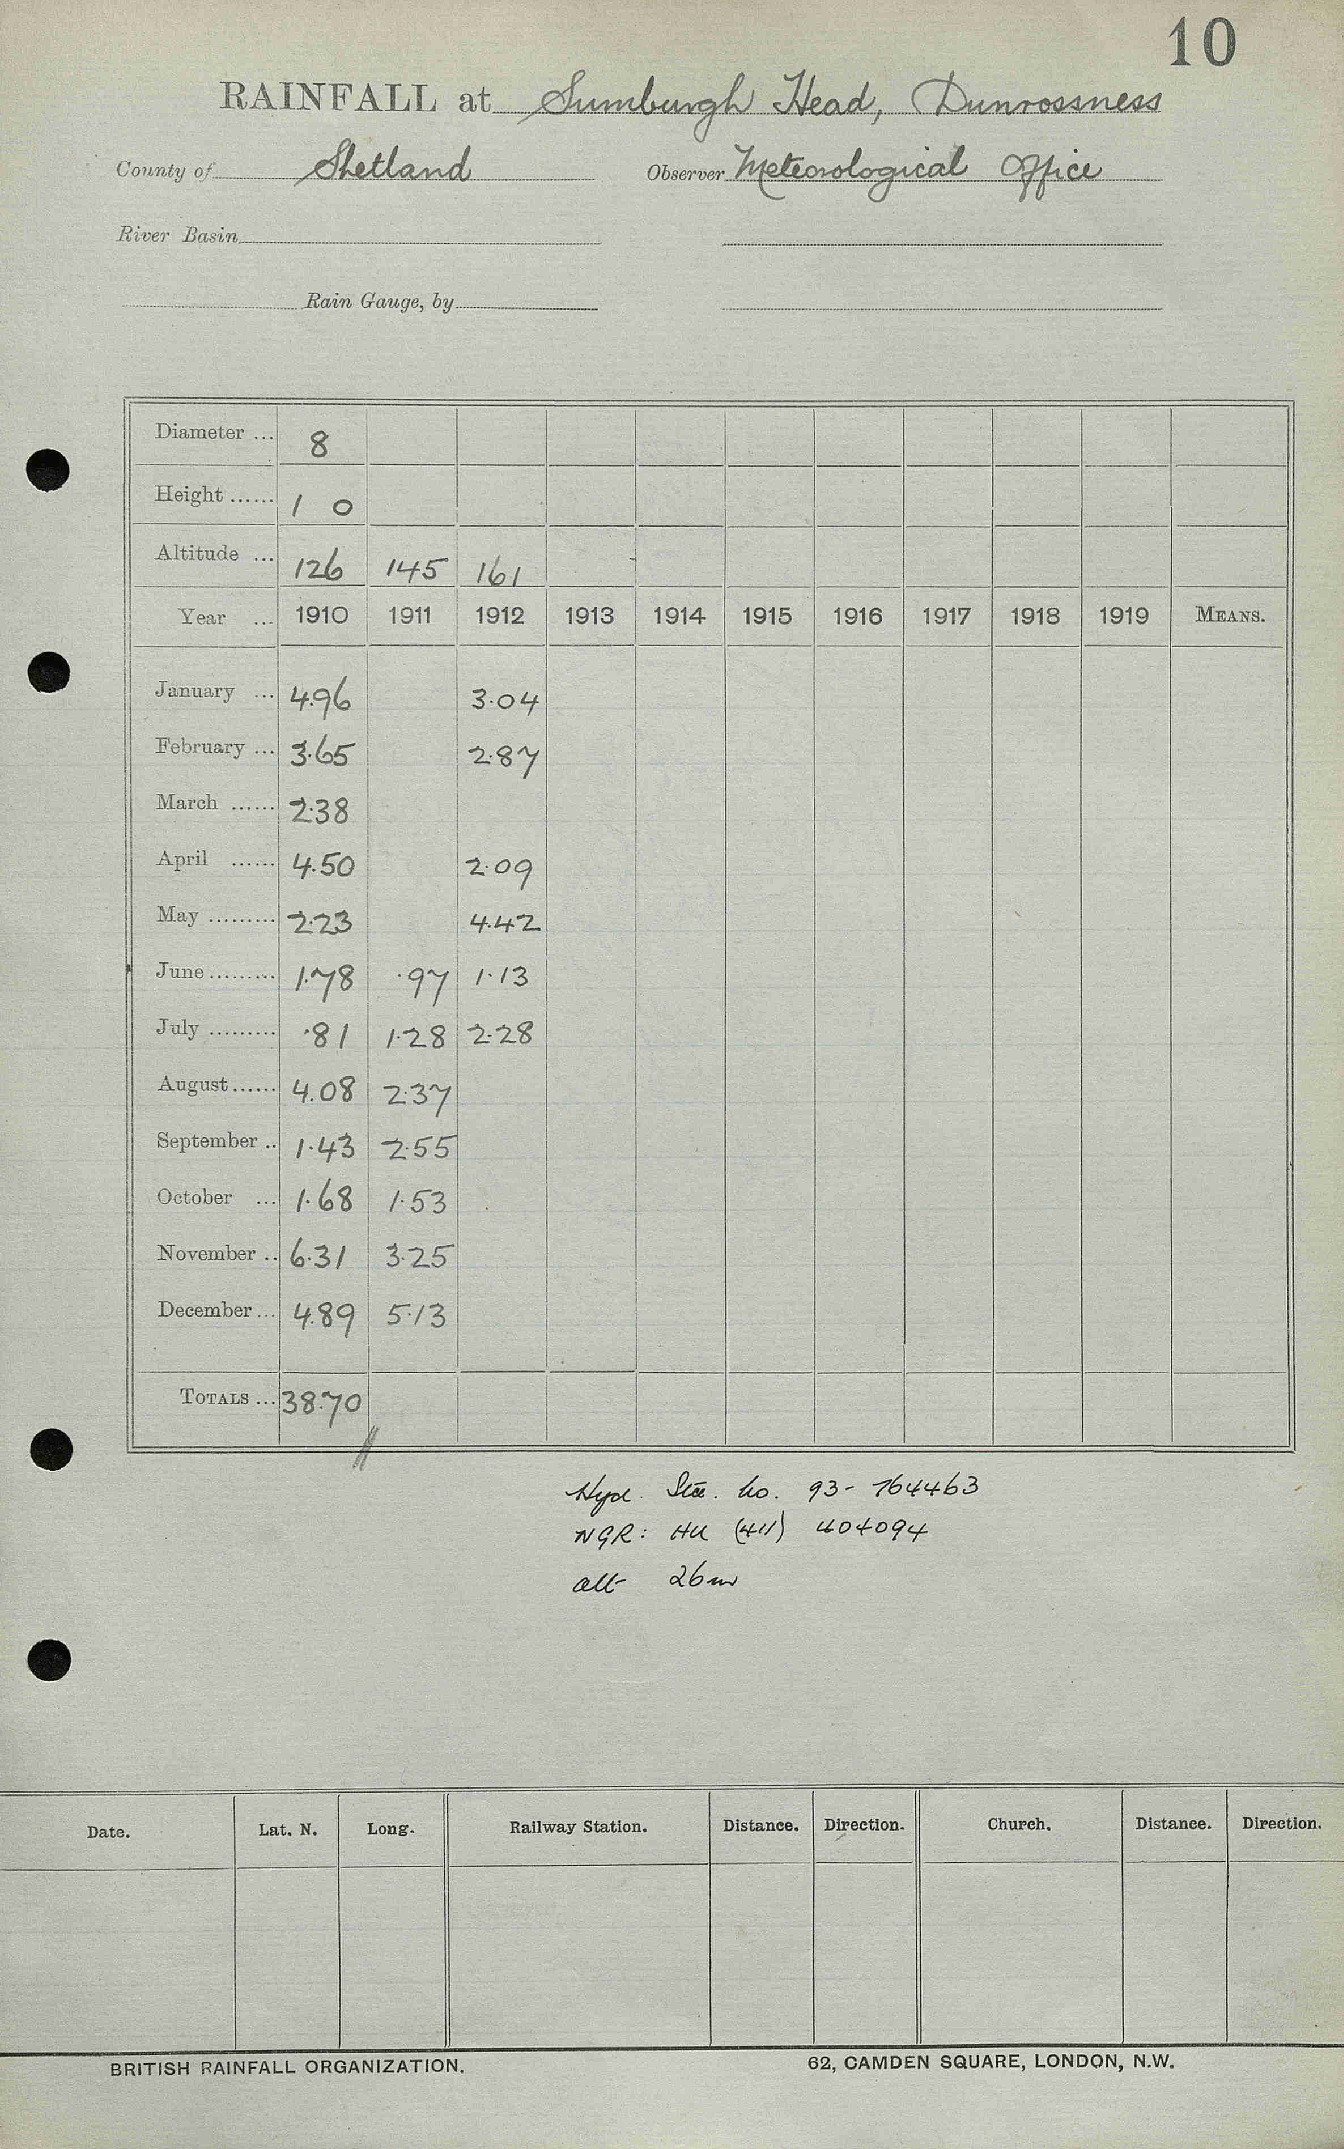 10
RAINFALL at Sumburgh Head, Dunrossness
County of Shetland Observer Meteorological Office
River Basin
Rain Gauge, by
Diameter ... 8
Height ...... 1 0
Altitude ... 126 145 161
Year ... 1910 1911 1912 1913 1914 1915 1916 1917 1918 1919 MEANS.
January ... 4.96 3.04
February ... 3.65 2.87
March ...... 2.38
April ...... 4.50 2.09
May ......... 2.23 4.42
June ......... 1.78 .97 1.13
July ......... .81 1.28 2.28
August ...... 4.08 2.37
September .. 1.43 2.55
October ... 1.68 1.53
November .. 6.31 3.25
December ... 4.89 5.13
TOTALS ... 38.70
Hyd. Sta. No. 93- 764463
NGR: HU (411) 404094
alt 26m
Date. Lat. N. Long. Railway Station. Distance. Direction. Church. Distance. Direction.
BRITISH RAINFALL ORGANIZATION. 62, CAMDEN SQUARE, LONDON, N.W.